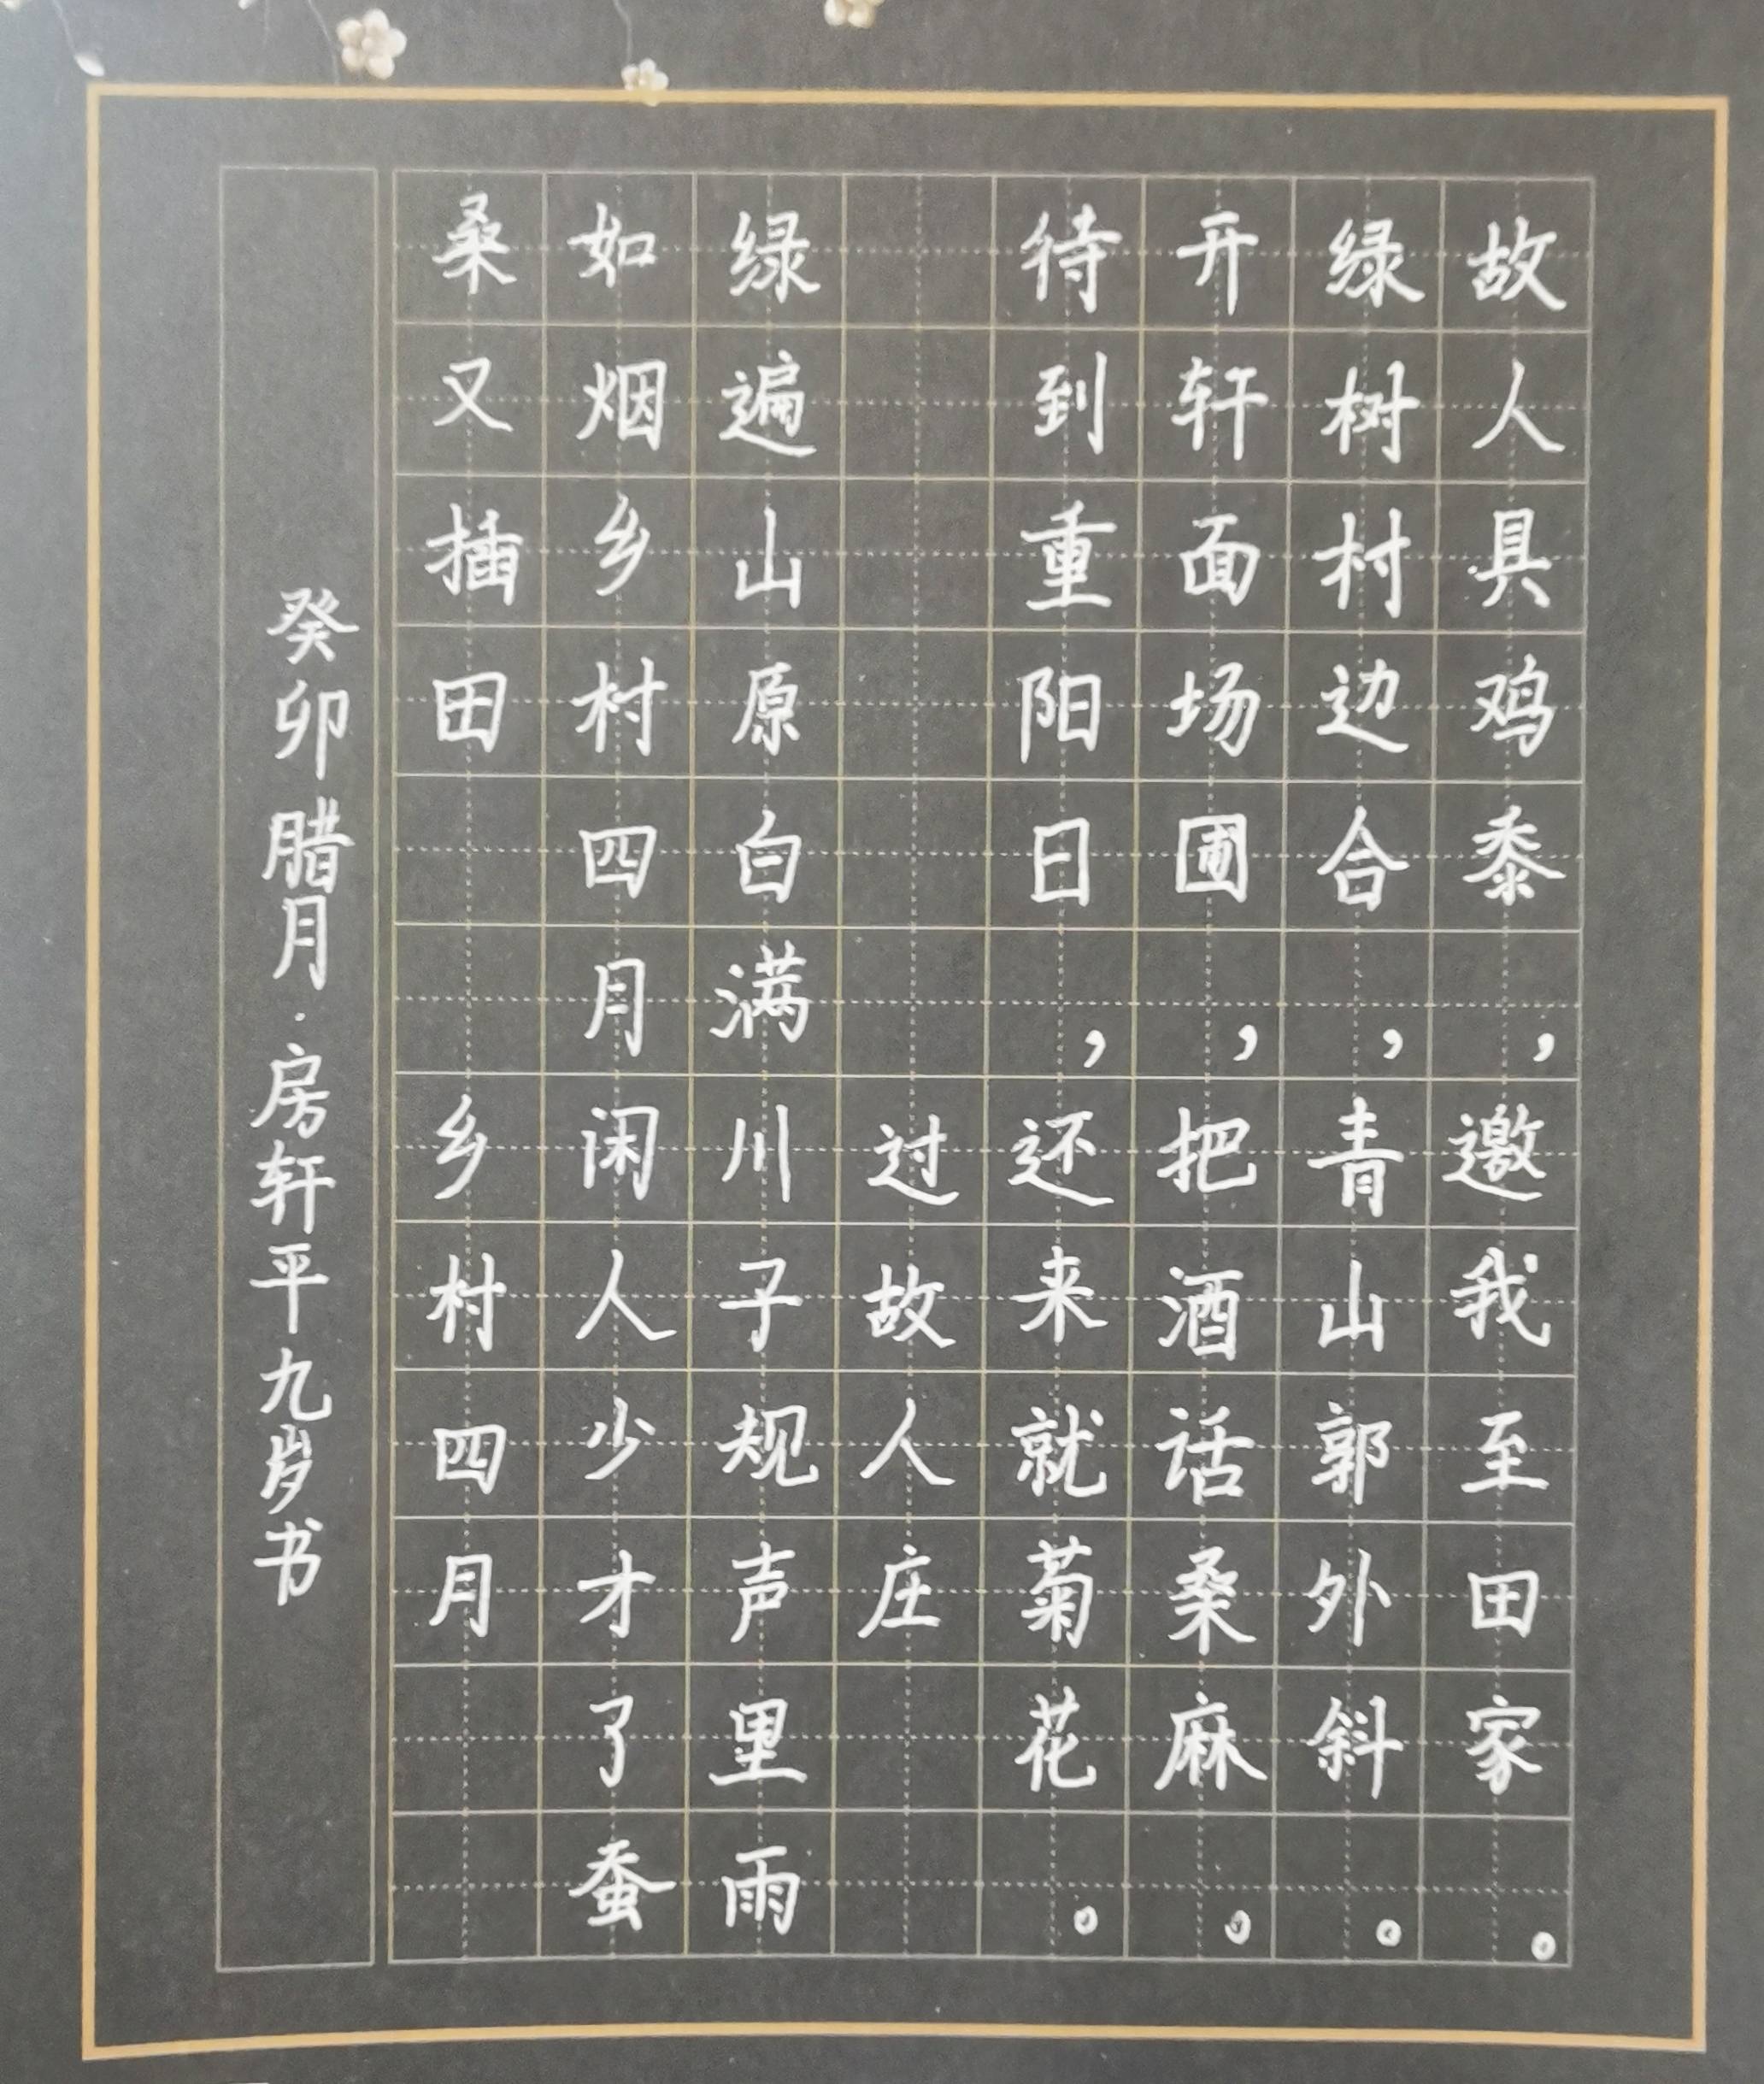 故人具鸡黍，邀我至田家。
绿树村边合，青山郭外斜。
开轩面场圃，把酒话桑麻。
待到重阳日，还来就菊花。
过故人庄
绿遍山原白满川子规声里雨
如烟乡村四月闲人少才了蚕
桑又插田 乡村四月
癸卯腊月·房轩平九岁书